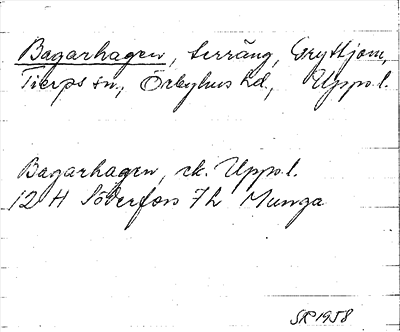 Bagarhagen, terräng, Gryttjom,
Tierps sn., Örbyhus hd., Uppsl.
Bagarhagen, ek. Uppsl.
12 H Söderfors 7h Munga
SR 1958